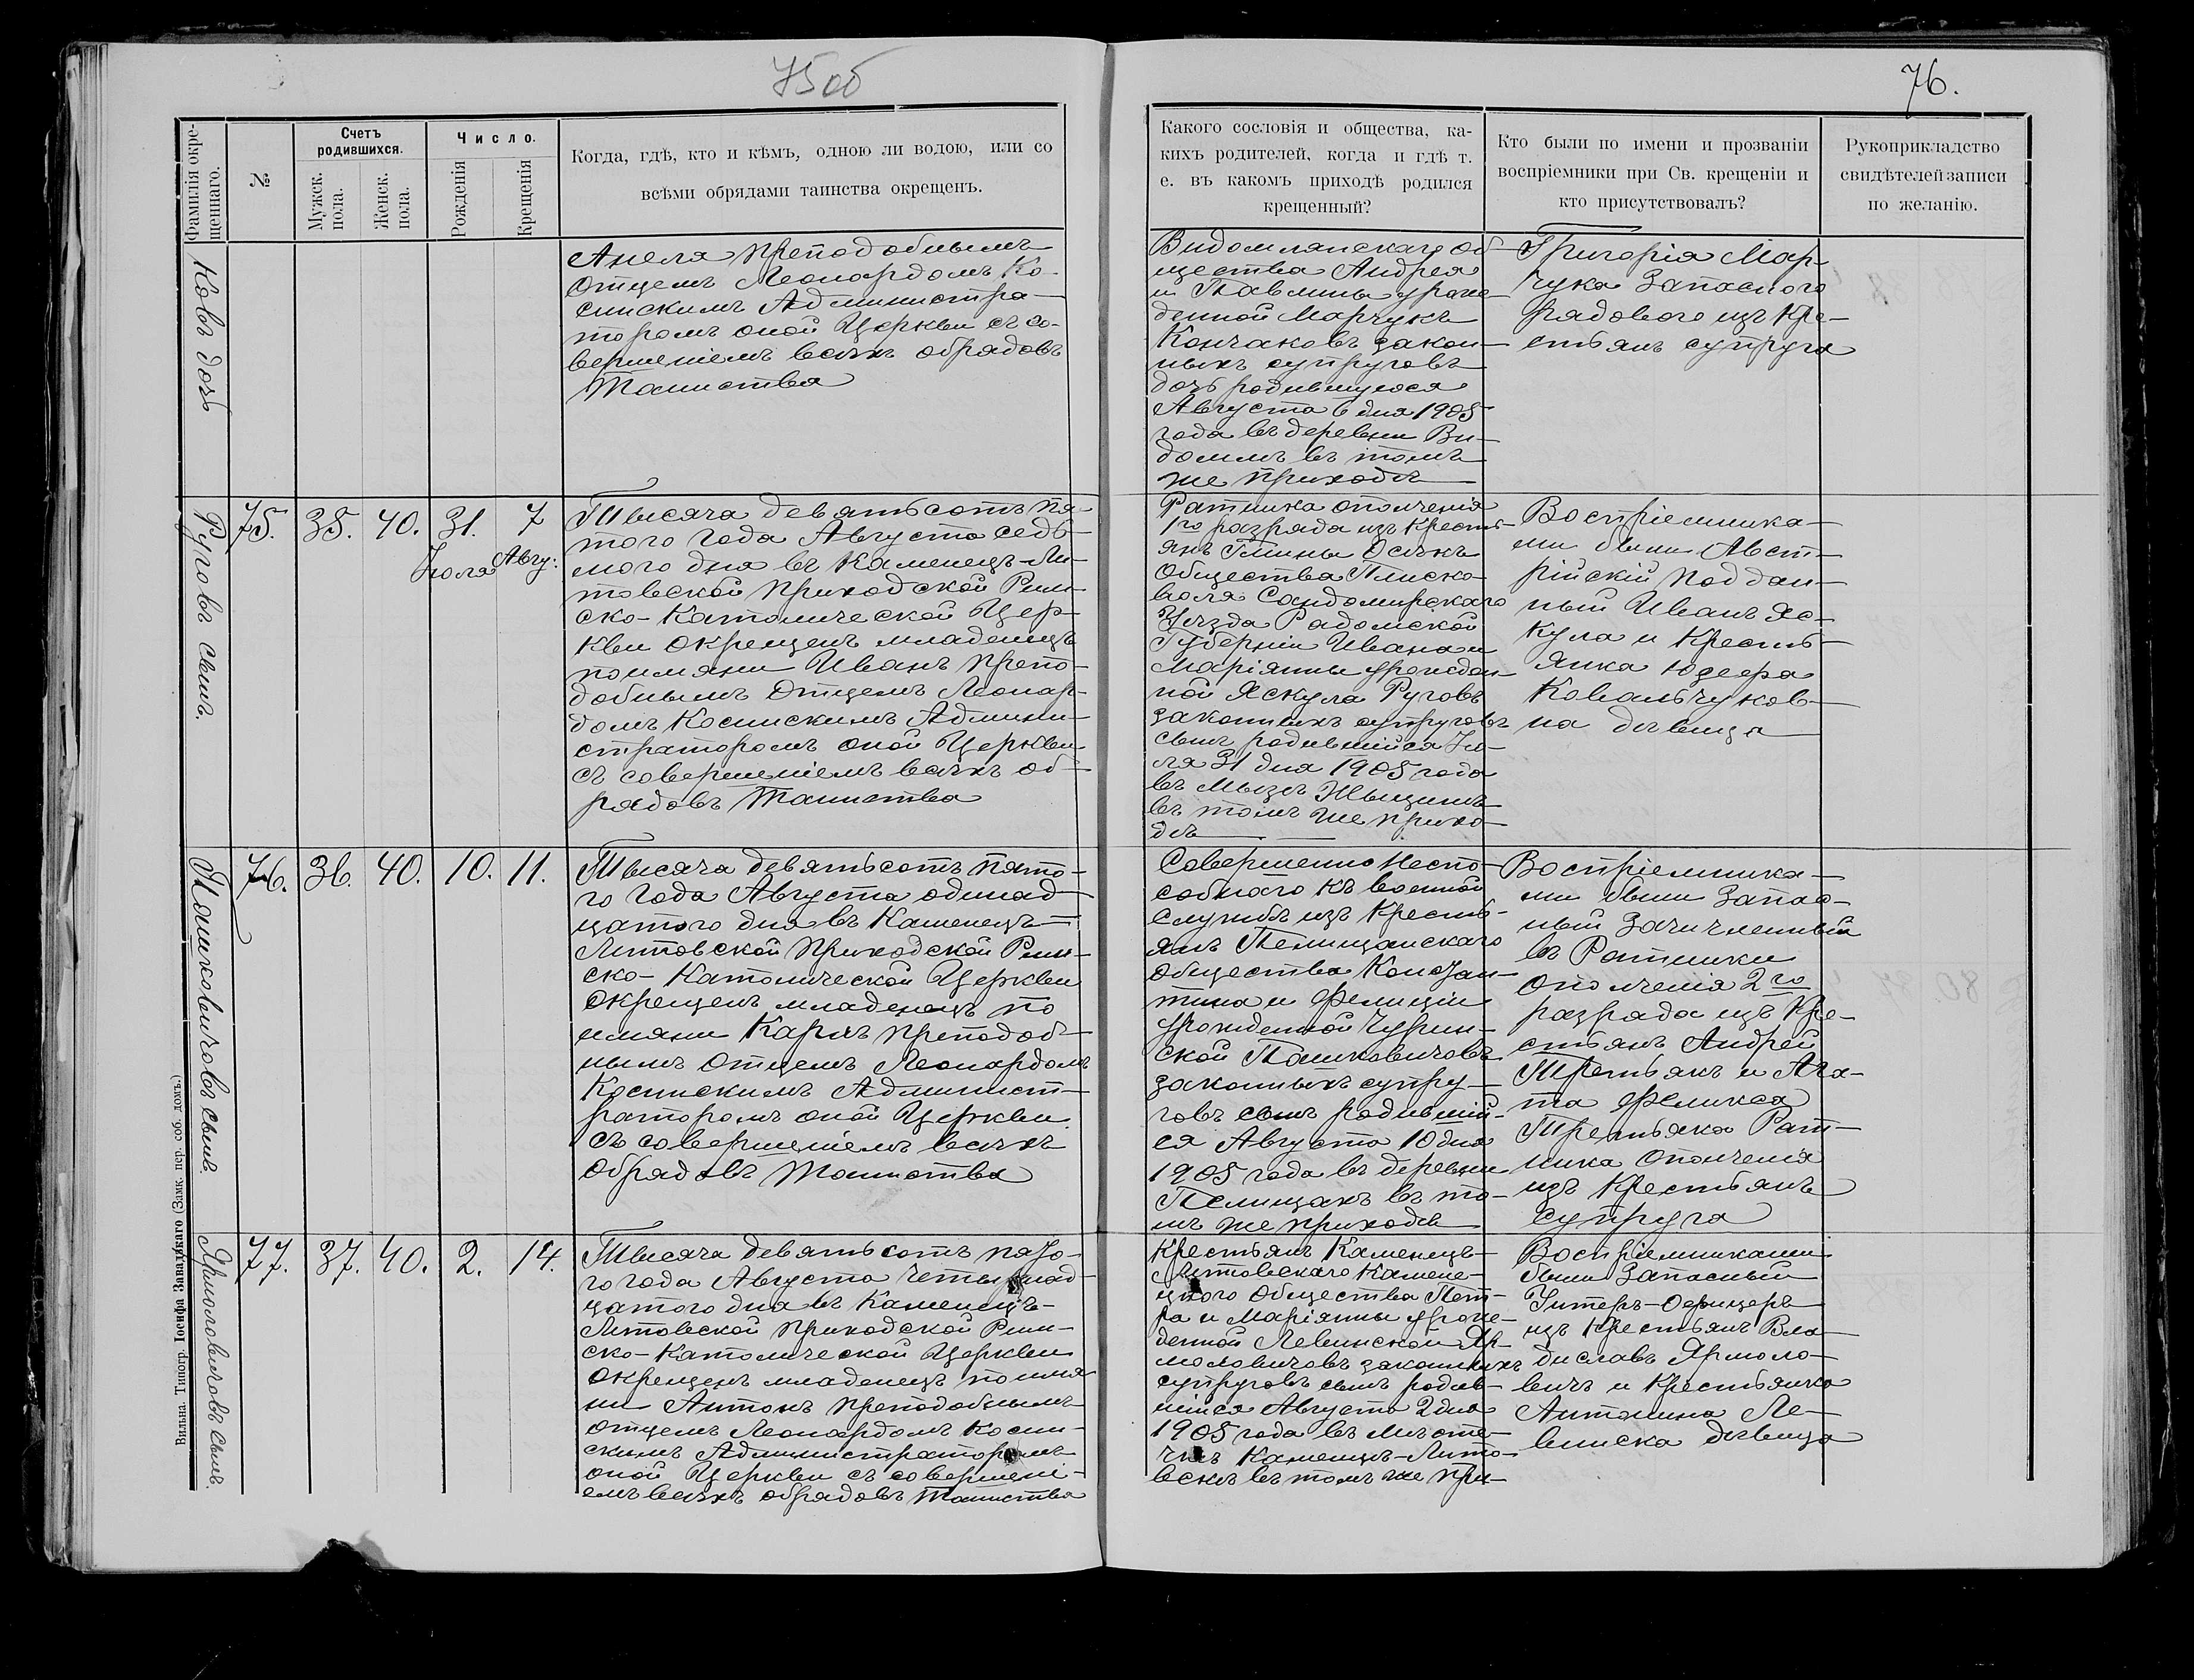 75 об
76.
Фамилія окре-
щеннаго.
№
Счетъ
родившихся.
Мужск.
пола.
Женск.
пола.
Число.
Рожденія
Крещенія
Когда, гдѣ, кто и кѣмъ, одною ли водою, или со
всѣми обрядами таинства окрещенъ.
Какого сословія и общества, ка-
кихъ родителей, когда и гдѣ т.
е. въ какомъ приходѣ родился
крещенный?
Кто были по имени и прозванію
воспріемники при Св. крещеніи и
кто присутствовалъ?
Рукоприкладство
свидѣтелей записи
по желанію.
Анеля Преподобнымъ
Отцемъ Леонардомъ Ко-
синскимъ Администра-
торомъ оной Церкви съ со-
вершеніемъ всѣхъ обрядовъ
Таинства
Видомлянскаго Об-
щества Андрея
и Павлины урож-
денной Марчукъ
Кончаковъ закон-
ныхъ супруговъ
дочь родившуюся
Августа 6 дня 1905
года въ деревни Ви-
домлѣ въ томъ
же приходѣ
Григорія Мар-
чука Запасного
рядового изъ Кре-
стьянъ супруга
Руговъ сынъ.
75. 35. 40. 31. 7
Іюля Авгу:
Тысяча девятьсотъ пя-
того года Августа седь-
мого дня въ Каменецъ-Ли-
товской Приходской Рим-
ско-Католической Цер-
кви окрещенъ младенецъ
по имяни Иванъ препо-
добнымъ Отцемъ Леонар-
домъ Косинскимъ Админи-
страторомъ оной Церкви
съ совершеніемъ всѣхъ об-
рядовъ Таинства
Ратника ополченія
1го разряда изъ Кресть-
янъ Гмины Осѣкъ
Общества Плиско-
воля Сандомирскаго
Уѣзда Радомской
Губерніи Ивана и
Маріянны урожден-
ной Яскула Руговъ
законныхъ супруговъ
сынъ родившійся Ію-
ля 31 дня 1905 года
въ Мызѣ
въ томъ же прихо-
дѣ
Воспріемника-
ми были Авст-
рійскій поддан-
ный Иванъ Яс-
кула и Кресть-
янка Юзефа
Ковальчуков-
на дѣвица
Пашковичовъ сынъ.
76. 36. 40. 10. 11.
Тысяча девятьсотъ пято-
го года Августа одинад-
цатого дня въ Каменецъ-
Литовской Приходской Рим-
ско-Католической Церкви
окрещенъ младенецъ по
имяни Карлъ преподоб-
нымъ Отцемъ Леонардомъ
Косинскимъ Админист-
раторомъ оной Церкви
съ совершеніемъ всѣхъ
обрядовъ Таинства
Совершенно неспо-
собнаго къ военной
службѣ изъ Кресть-
янъ Пелищанскаго
общества Констан-
тина и Фелиціи
урожденной Чурин-
ской Пашковичовъ
законныхъ супру-
говъ сынъ родивший-
ся Августа 10 дня
1905 года въ деревни
Пелищахъ въ то-
мъ же приходѣ
Воспріемника-
ми были Запас-
ный Зачисленный
въ Ратники
Ополченія 2го
разряда изъ Кре-
стьянъ Андрей
Третьякъ и Ага-
та Феликса
Третьяка Рат-
ника Ополченія
изъ Крестьянъ
супруга
Ярмоловичовъ сынъ.
77. 37. 40. 2. 14.
Тысяча девятьсотъ пято-
го года Августа четырнад-
цатого дня въ Каменецъ-
Литовской Приходской Рим-
ско-Католической Церкви
окрещенъ младенецъ по имя-
ни Антонъ преподобнымъ
отцемъ Леонардомъ Косин-
скимъ Администраторомъ
оной Церкви съ совершені-
емъ всѣхъ обрядовъ Таинства
Крестьянъ Каменецъ-
Литовскаго Камене-
цкого Общества Пет-
ра и Маріянны урож-
денной Левинской Яр-
моловичовъ законныхъ
супруговъ сынъ родив-
шійся Августа 2 дня
1905 года въ Мѣсте-
чкѣ Каменецъ-Лито-
вскъ въ томъ же при-
Воспріемниками
были Запасный
Унтеръ-Офицеръ
изъ Крестьянъ Вла-
диславъ Ярмоло-
вичъ и Крестьянка
Антонина Ле-
винска дѣвица
Вильна. Типогр. Іосифа Завадзкаго (Замк. пер. соб. домъ.)